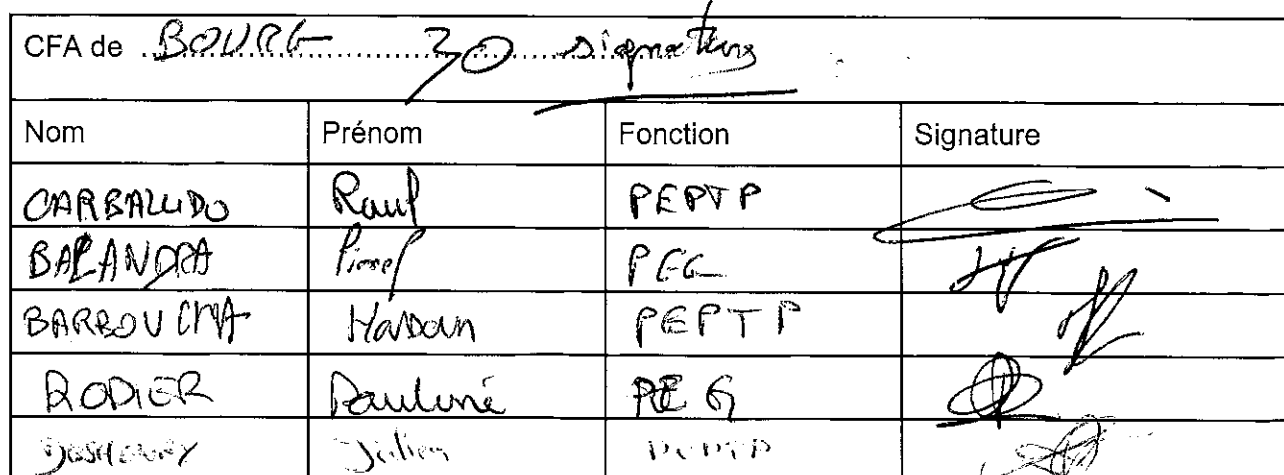 CFA de BOURG 30 signatures
Nom Prénom Fonction Signature
CARBALLIDO Raul PEPTP
BALANDRA PEG
BARBOUCHA PEPTP
RODIER Pauline PEG
Julien PEPTP